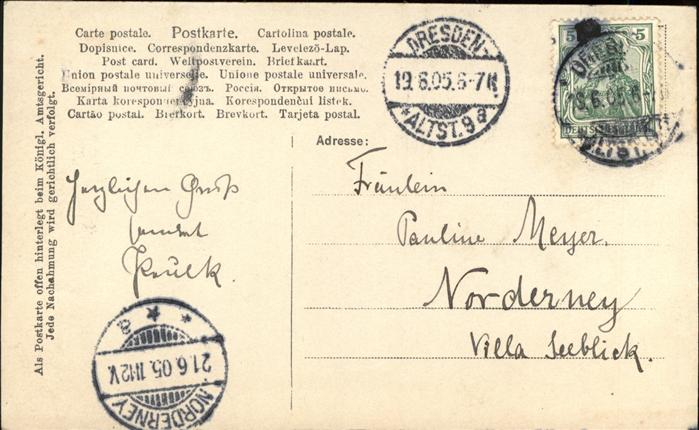 Carte postale. Postkarte. Cartolina postale.
Dopisnice. Correspondenzkarte. Levelező-Lap.
Post card. Weltpostverein. Briefkaart.
Union postale universelle. Unione postale universale.
Всемірный почтовый союзъ. Россія. Открытое письмо.
Karta korespondencyjna. Korespondenční listek.
Cartão postal. Brerkort. Brevkort. Tarjeta postal.
Als Postkarte offen hinterlegt beim Königl. Amtsgericht.
Jede Nachahmung wird gerichtlich verfolgt.
DRESDEN-
19.6.05.6-7N
*ALTST.9a
5 5
DRESD
19.6.05.6-7N
ALTST.
Adresse:
Fräulein
Pauline Meyer.
Norderney
Villa Seeblick.
Herzlichen Gruß
sendet
NORDERNEY
21.6.05.11-12V.
* * a